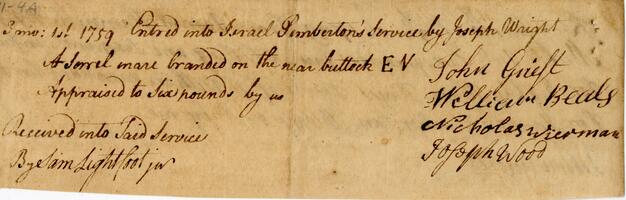 1-4A
3 mo: 1st 1759 Entred into Israel Pemberton's Service by Joseph Wright
A Sorrel mare branded on the near buttock E V
Appraised to Six pounds by us
John Griest
William Beals
Nicholas Wierman
Joseph Wood
Received into Said Service
By Sam Lightfoot jur